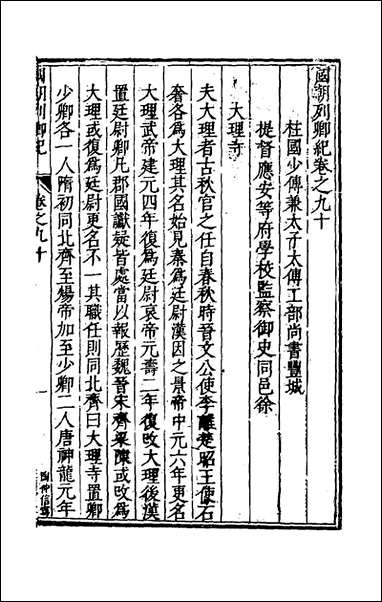 國朝列卿紀卷之九十
柱國少傅兼太子太傅工部尚書豐城
提督應安等府學校監察御史同邑徐
大理寺
夫大理者古秋官之任自春秋時晉文公使李離楚昭王使石
奢各爲大理其名始見秦爲廷尉漢因之景帝中元六年更名
大理武帝建元四年復爲廷尉哀帝元壽二年復改大理後漢
置廷尉卿凡郡國讞疑皆處當以報歷魏晉宋齊梁陳或改爲
大理或復爲廷尉更名不一其職任則同北齊曰大理寺置卿
少卿各一人隋初同北齊至煬帝加至少卿二人唐神龍元年
國朝列卿紀
卷之九十